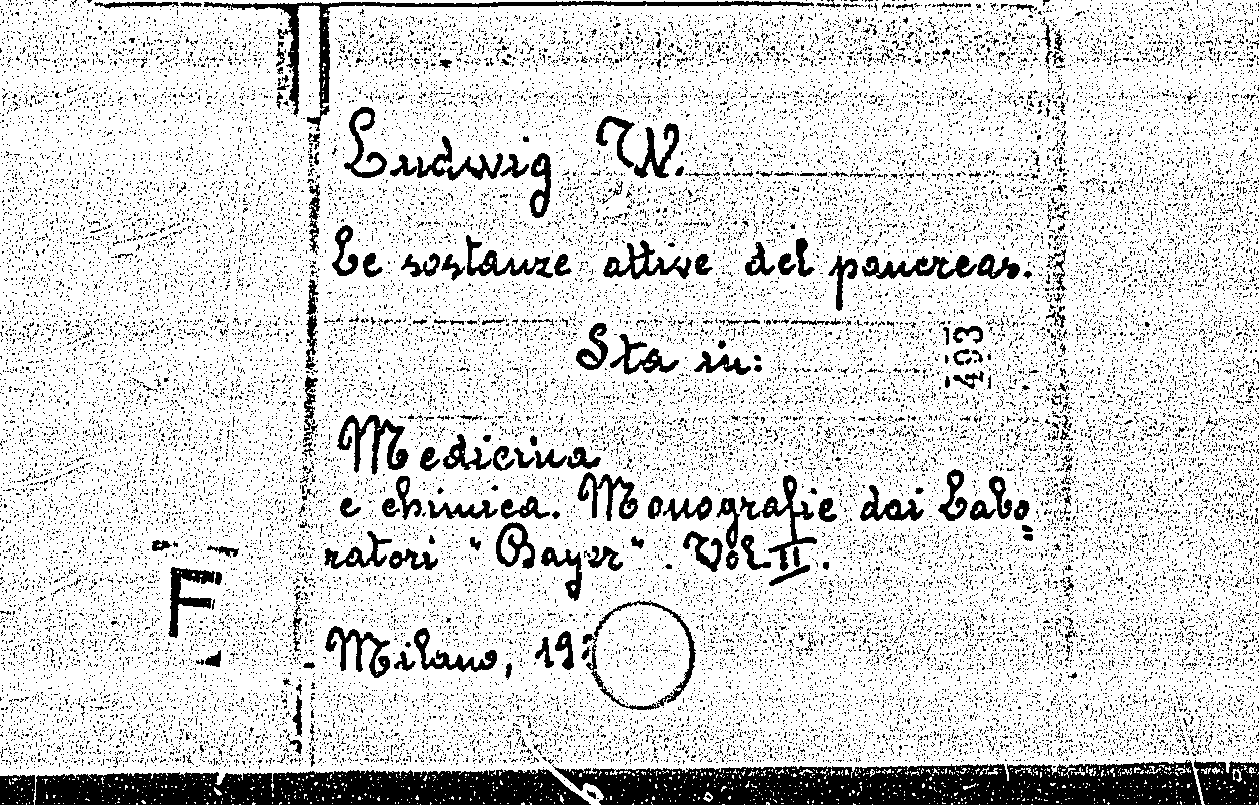 Ludwig W.
Le sostanze attive del pancreas.
Sta in:
493
Medicina
e chimica. Monografie dai Labo=
ratori "Bayer". Vol. II.
F
Milano, 19